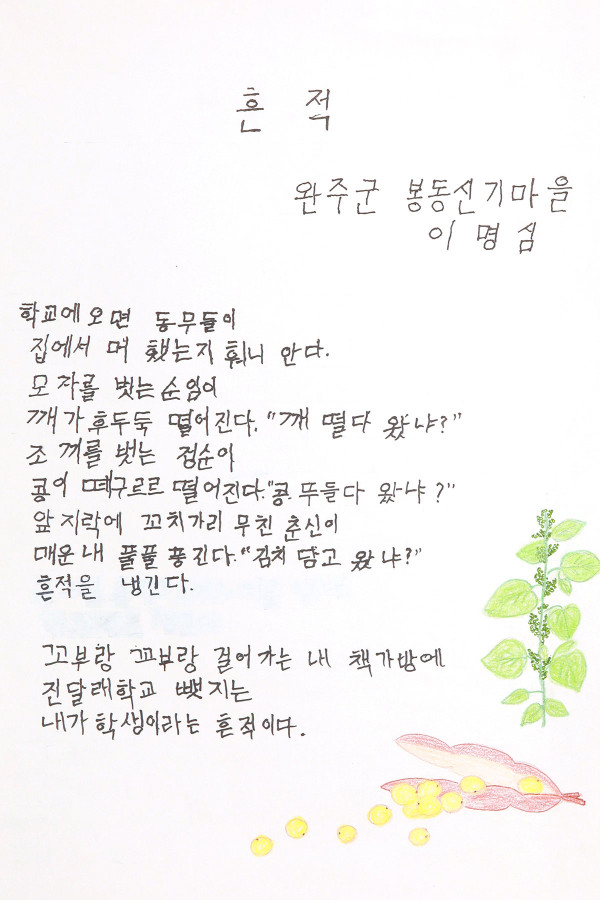 흔 적
완주군 봉동신기마을
이 명 심
학교에 오면 동무들이
집에서 머 했는지 훠니 안다.
모자를 벗는 순임이
깨가 후두둑 떨어진다. "깨 떨다 왔냐?"
조끼를 벗는 정순이
콩이 떼구르르 떨어진다. "콩 뚜들다 와냐?"
앞지락에 꼬치가리 무친 춘신이
매운내 풀풀 풍긴다. "김치 담고 왔냐?"
흔적을 냉긴다.
꼬부랑 꼬부랑 걸어가는 내 책가방에
진달래학교 뺏지는
내가 학생이라는 흔적이다.